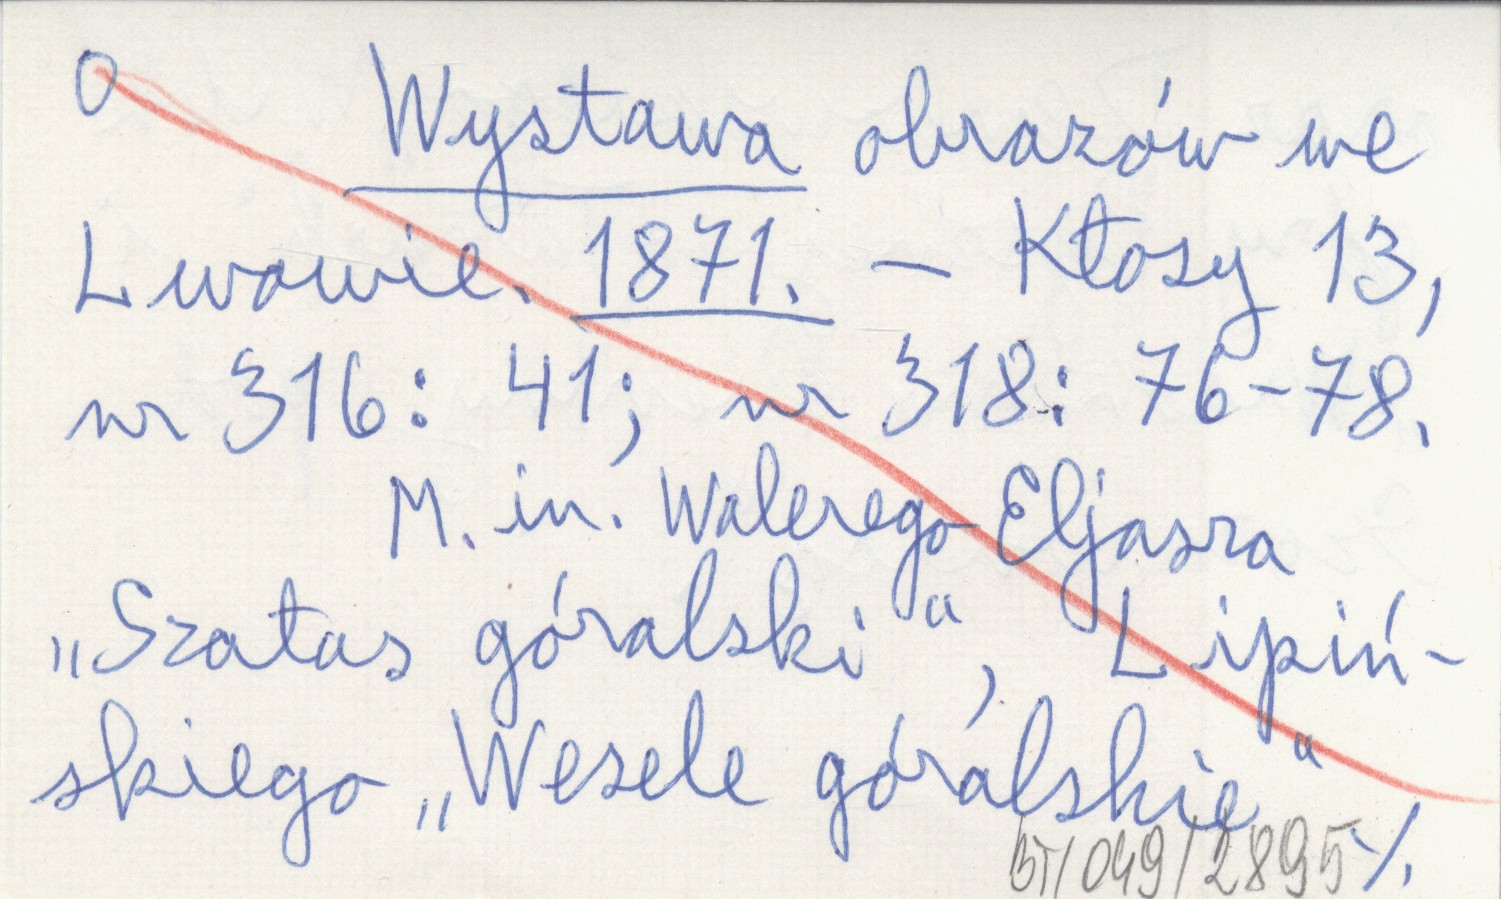 O Wystawa obrazów we
Lwowie. 1871. – Kłosy 13,
nr 316: 41; nr 318: 76–78.
M. in. Walerego Eljasza
„Szałas góralski“, Lipiń-
skiego „Wesele góralskie“
BT/049/2895 ./.